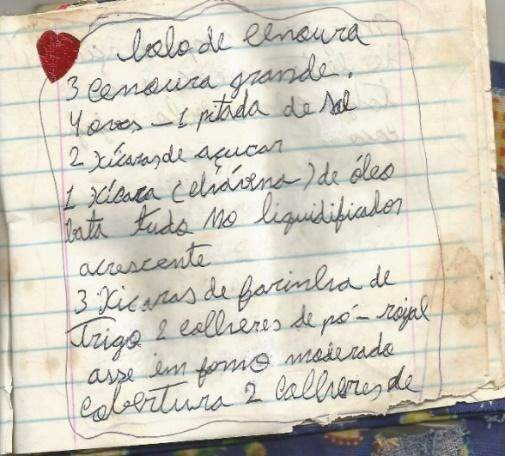 bolo de cenoura
3 cenoura grande.
4 ovos - 1 pitada de sal
2 xícaras de açucar
1 xícara (chávena) de óleo
bata tudo no liquidificador
acrescente
3 xicaras de farinha de
trigo 2 colheres de pó - royal
asse em forno moderado
cobertura 2 colheres de